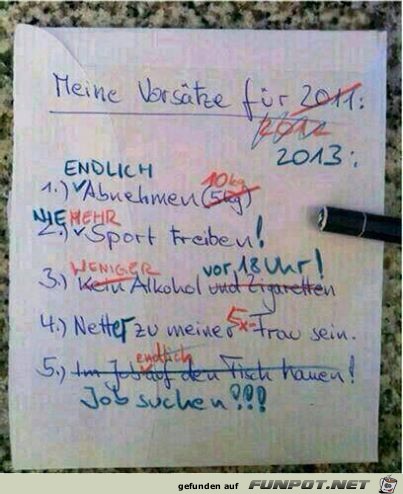 Meine Vorsätze für 2011:
2012
2013:
ENDLICH
10kg
1.) Abnehmen (5kg)
NIE MEHR
2.) Sport treiben!
WENIGER vor 18 Uhr!
3.) Kein Alkohol und Zigaretten
4.) Netter zu meiner 5x Frau sein.
endlich
5.) Im Job auf den Tisch hauen!
Job suchen!!!
gefunden auf FUNPOT.NET